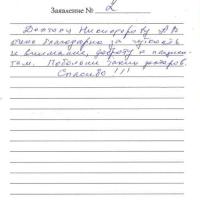 Заявление № 2
Доктору Никифорову А В
очень благодарна за чуткость
и внимание, доброту к пациен-
там. Побольше таких докторов.
Спасибо !!!